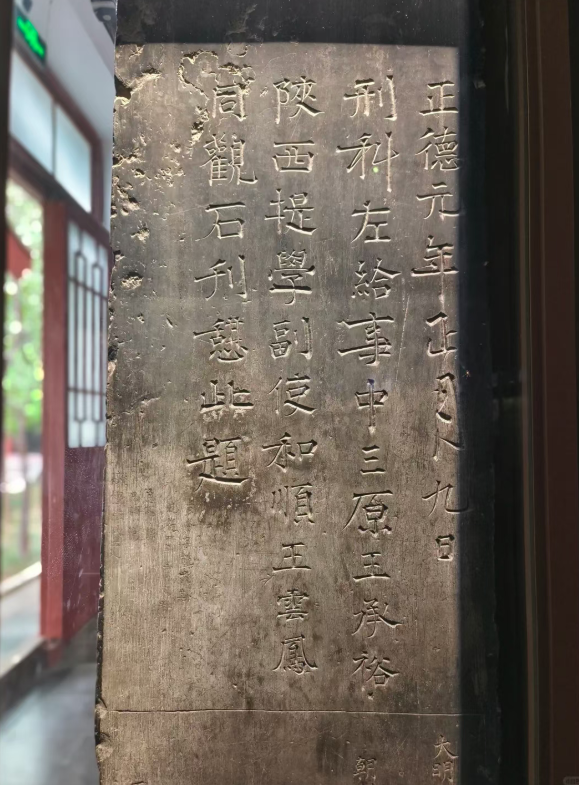 正德元年正月九日
刑科左給事中三原王承裕
陝西提學副使和順王雲鳳
同觀石刻憇此題
大明
朝